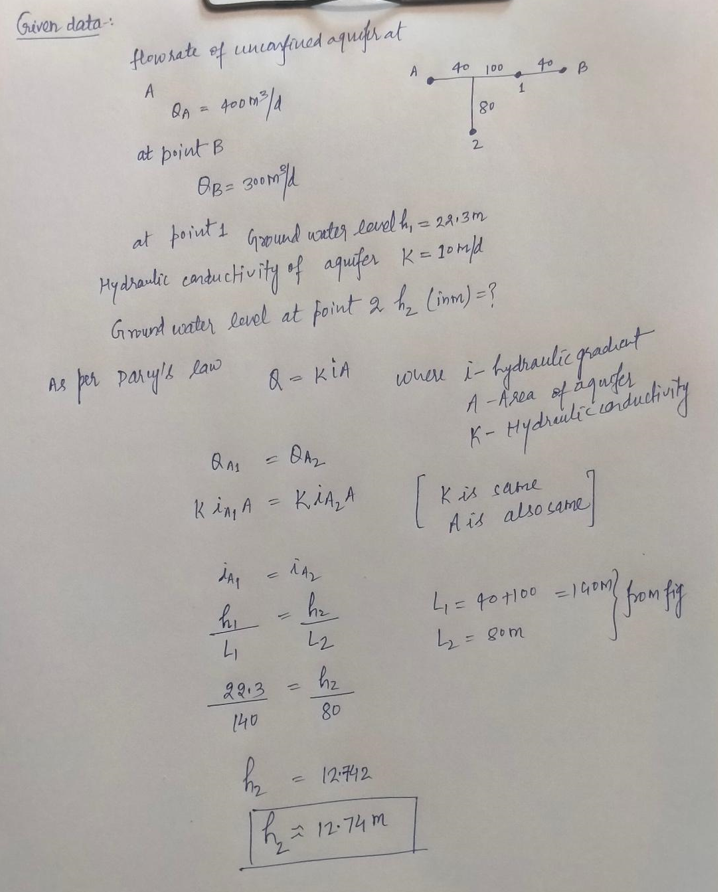 Given data:-
flow rate of unconfined aquifer at
A
Q_A = 400 m³/d
at point B
Q_B = 300 m³/d
A 40 100 40 B
1
80
2
at point 1 Ground water level h₁ = 22.3m
Hydraulic conductivity of aquifer K = 10 m/d
Ground water level at point 2 h₂ (in m) = ?
As per Darcy's law Q = KiA where i - hydraulic gradient
A - Area of aquifer
K - Hydraulic conductivity
Q_A1 = Q_A2
K i_A1 A = K i_A2 A [K is same
A is also same]
i_A1 = i_A2
h₁/L₁ = h₂/L₂ L₁ = 40+100 = 140m } from fig
L₂ = 80m
22.3/140 = h₂/80
h₂ = 12.742
h₂ ≈ 12.74 m